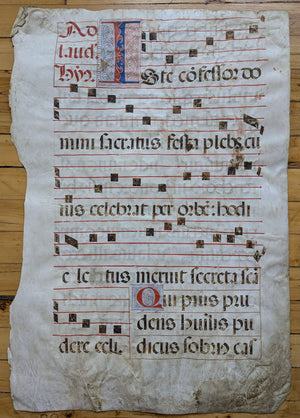 Ad
Laud.
Hyn.
Iste cõfessor do
mini sacratus festa plebs cu
ius celebrat per orbẽ: hodi
e letus meruit secreta scã
dere celi.
Qui pius pru
dens hũilis pu
dicus cas